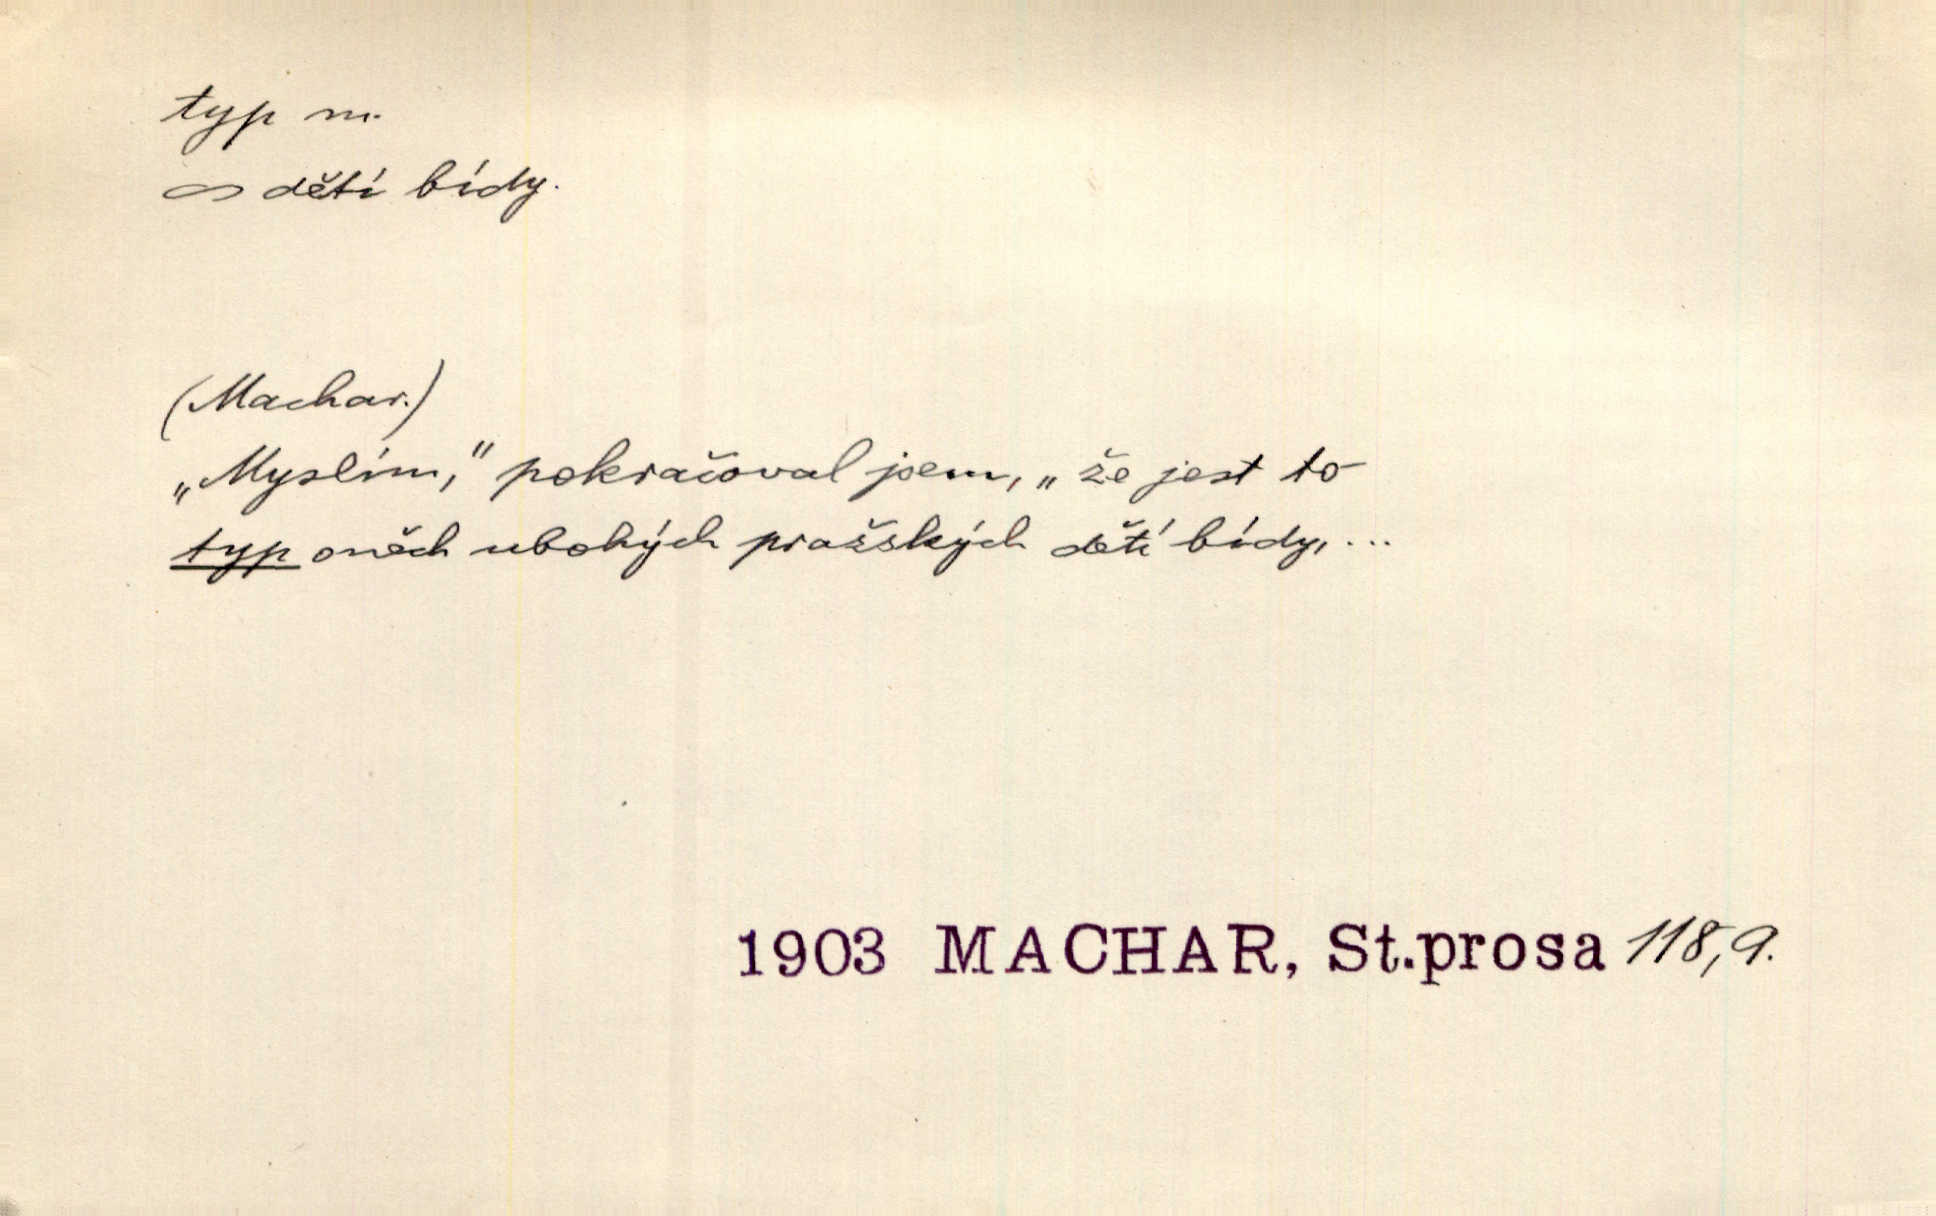 typ m.
∞ dětí bídy.
(Machar.)
„Myslím,“ pokračoval jsem, „že jest to
typ oněch ubohých pražských dětí bídy, ...
1903 MACHAR, St.prosa 118,9.